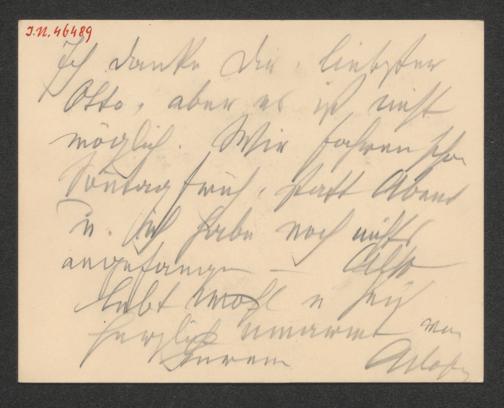 J.N. 46489
Ich danke Dir, liebster
Otto, aber es ist nicht
möglich. Wir fahren schon
Sonntag früh, statt Abend
u. ich habe noch nichts
angefangen — Also
lebt wohl u seid
herzlich umarmt von
Eurem